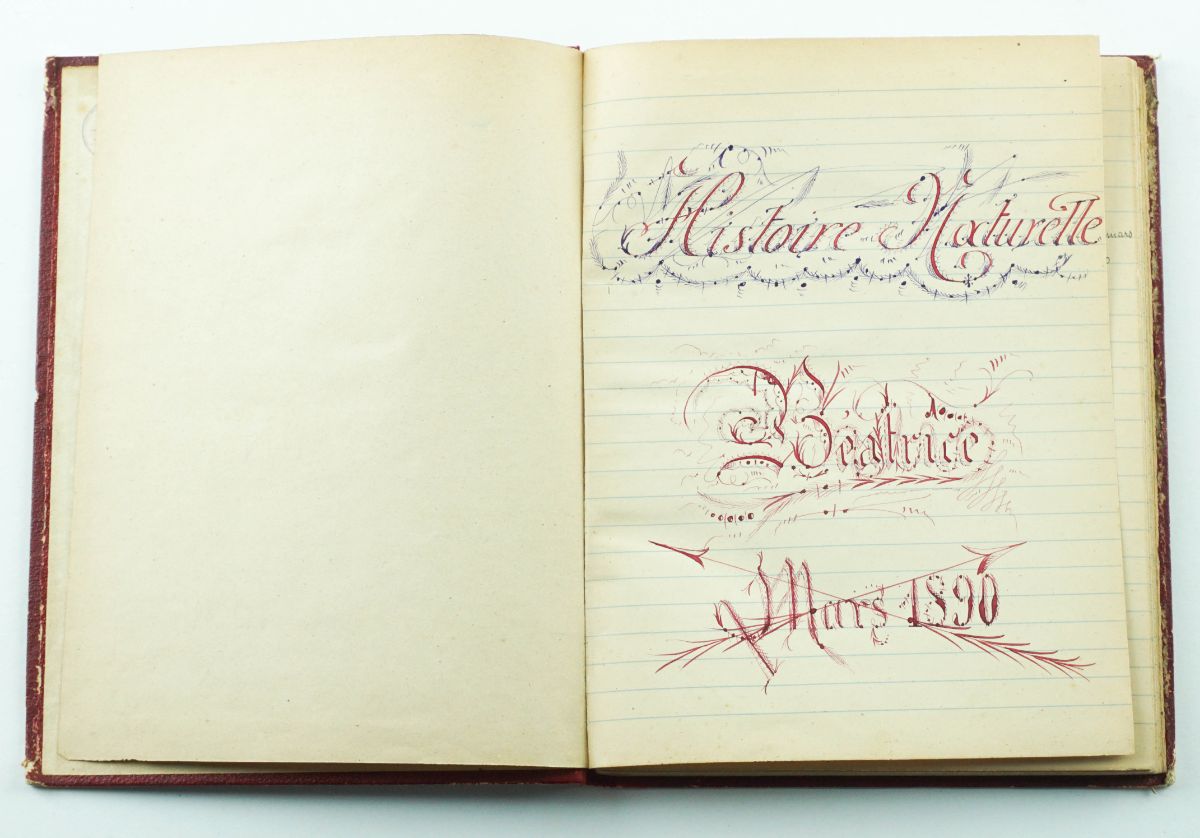 Histoire Naturelle
mars
Béatrice
Mars 1890